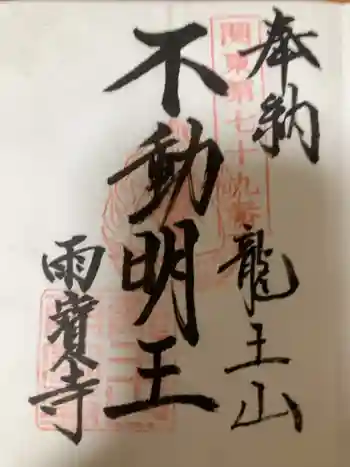 奉納
関東第七十九番
龍王山
不動明王
雨寳寺